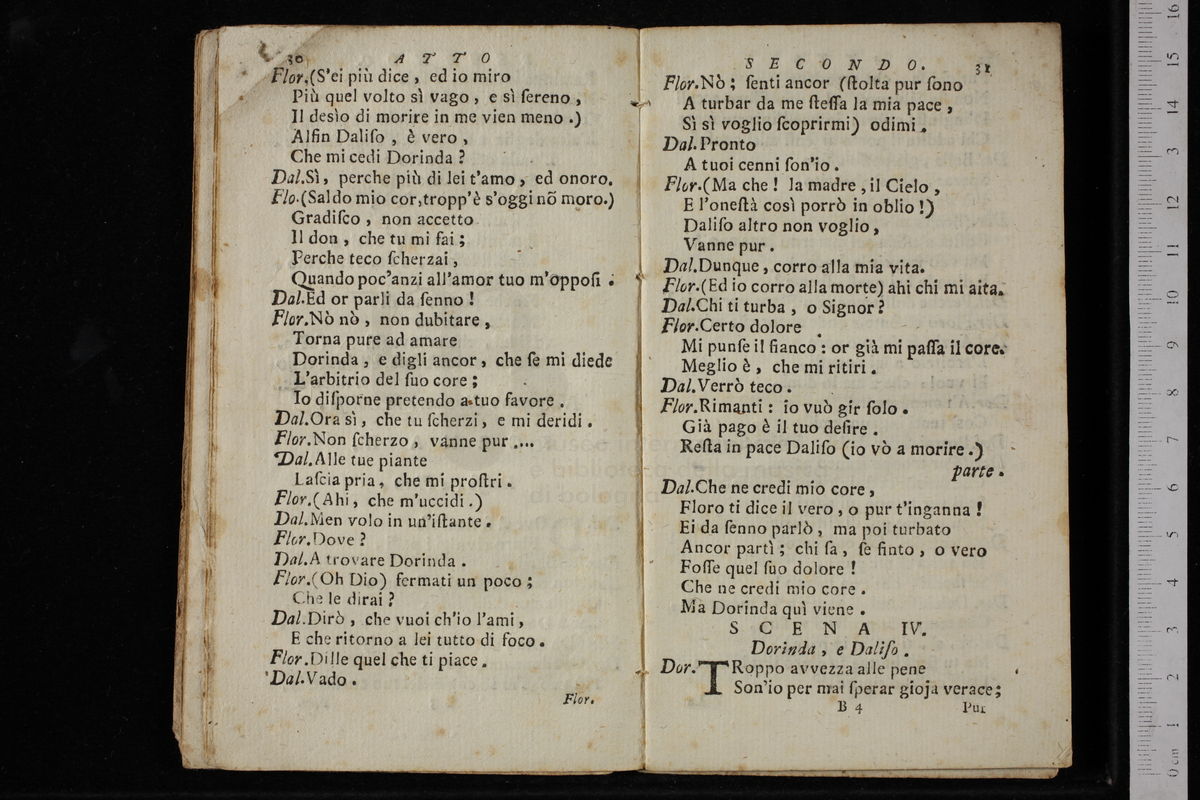 30 ATTO
Flor.(S'ei più dice, ed io miro
Più quel volto sì vago, e sì ſereno,
Il desìo di morire in me vien meno.)
Alfin Daliſo, è vero,
Che mi cedi Dorinda?
Dal.Sì, perche più di lei t'amo, ed onoro.
Flo.(Saldo mio cor,tropp'è s'oggi nõ moro.)
Gradiſco, non accetto
Il don, che tu mi fai;
Perche teco ſcherzai,
Quando poc'anzi all'amor tuo m'oppoſi.
Dal.Ed or parli da ſenno!
Flor.Nò nò, non dubitare,
Torna pure ad amare
Dorinda, e digli ancor, che ſe mi diede
L'arbitrio del ſuo core;
Io diſporne pretendo a tuo favore.
Dal.Ora sì, che tu ſcherzi, e mi deridi.
Flor.Non ſcherzo, vanne pur....
Dal.Alle tue piante
Laſcia pria, che mi proſtri.
Flor.(Ahi, che m'uccidi.)
Dal.Men volo in un'iſtante.
Flor.Dove?
Dal.A trovare Dorinda.
Flor.(Oh Dio) fermati un poco;
Che le dirai?
Dal.Dirò, che vuoi ch'io l'ami,
E che ritorno a lei tutto di foco.
Flor.Dille quel che ti piace.
Dal.Vado.
Flor.
SECONDO. 31
Flor.Nò; ſenti ancor (ſtolta pur ſono
A turbar da me ſteſſa la mia pace,
Sì sì voglio ſcoprirmi) odimi.
Dal.Pronto
A tuoi cenni ſon'io.
Flor.(Ma che! la madre, il Cielo,
E l'oneſtà così porrò in oblio!)
Daliſo altro non voglio,
Vanne pur.
Dal.Dunque, corro alla mia vita.
Flor.(Ed io corro alla morte) ahi chi mi aita.
Dal.Chi ti turba, o Signor?
Flor.Certo dolore
Mi punſe il fianco: or già mi paſſa il core.
Meglio è, che mi ritiri.
Dal.Verrò teco.
Flor.Rimanti: io vuò gir ſolo.
Già pago è il tuo deſire.
Reſta in pace Daliſo (io vò a morire.)
parte.
Dal.Che ne credi mio core,
Floro ti dice il vero, o pur t'inganna!
Ei da ſenno parlò, ma poi turbato
Ancor partì; chi ſa, ſe finto, o vero
Foſſe quel ſuo dolore!
Che ne credi mio core.
Ma Dorinda quì viene.
SCENA IV.
Dorinda, e Daliſo.
Dor.TRoppo avvezza alle pene
Son'io per mai ſperar gioja verace;
B 4 Pur
0 cm 1 2 3 4 5 6 7 8 9 10 11 12 13 14 15 16